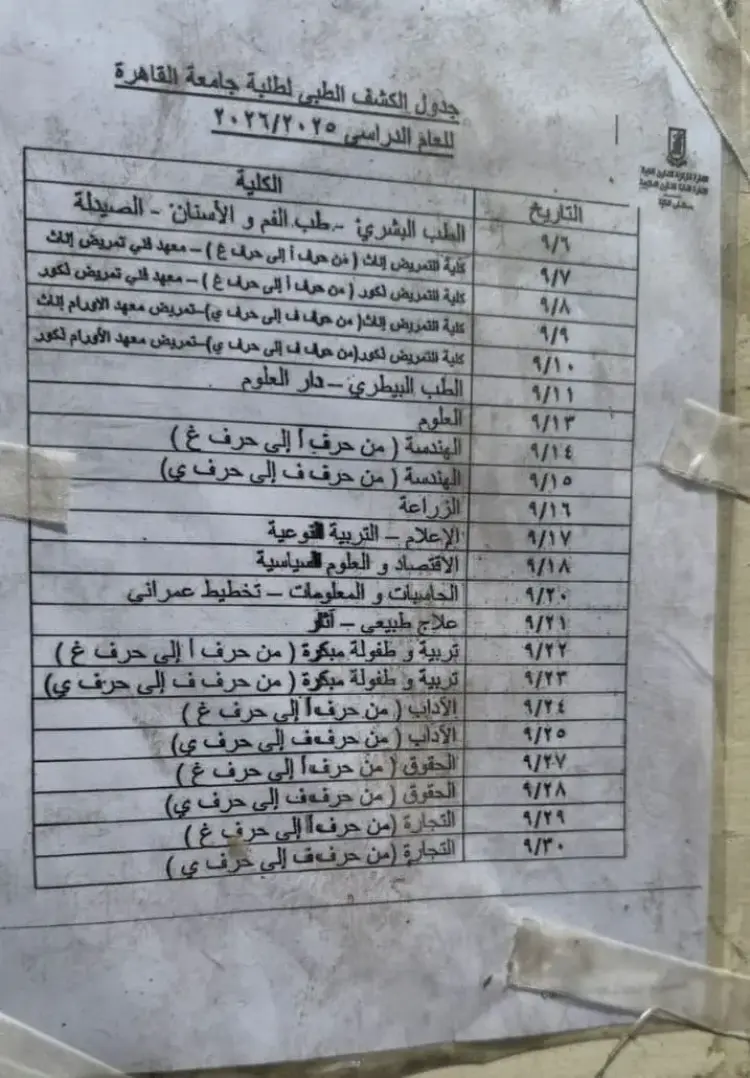 جدول الكشف الطبى لطلبة جامعة القاهرة
للعام الدراسى ٢٠٢٦/٢٠٢٥
التاريخ الكلية
٩/٦ الطب البشري - طب الفم و الأسنان - الصيدلة
٩/٧ كلية التمريض إناث ( من حرف أ إلى حرف غ ) – معهد فني تمريض إناث
٩/٨ كلية التمريض ذكور ( من حرف أ إلى حرف غ ) – معهد فني تمريض ذكور
٩/٩ كلية التمريض إناث( من حرف ف إلى حرف ي)–تمريض معهد الاورام إناث
٩/١٠ كلية التمريض ذكور(من حرف ف إلى حرف ي)–تمريض معهد الأورام ذكور
٩/١١ الطب البيطري – دار العلوم
٩/١٣ العلوم
٩/١٤ الهندسة ( من حرف أ إلى حرف غ )
٩/١٥ الهندسة ( من حرف ف إلى حرف ي)
٩/١٦ الزراعة
٩/١٧ الإعلام – التربية النوعية
٩/١٨ الاقتصاد و العلوم السياسية
٩/٢٠ الحاسبات و المعلومات – تخطيط عمرانى
٩/٢١ علاج طبيعى – آثار
٩/٢٢ تربية و طفولة مبكرة ( من حرف أ إلى حرف غ )
٩/٢٣ تربية و طفولة مبكرة ( من حرف ف إلى حرف ي)
٩/٢٤ الآداب ( من حرف أ إلى حرف غ )
٩/٢٥ الآداب ( من حرف ف إلى حرف ي)
٩/٢٧ الحقوق ( من حرف أ إلى حرف غ )
٩/٢٨ الحقوق ( من حرف ف إلى حرف ي)
٩/٢٩ التجارة (من حرف أ إلى حرف غ )
٩/٣٠ التجارة (من حرف ف إلى حرف ي )